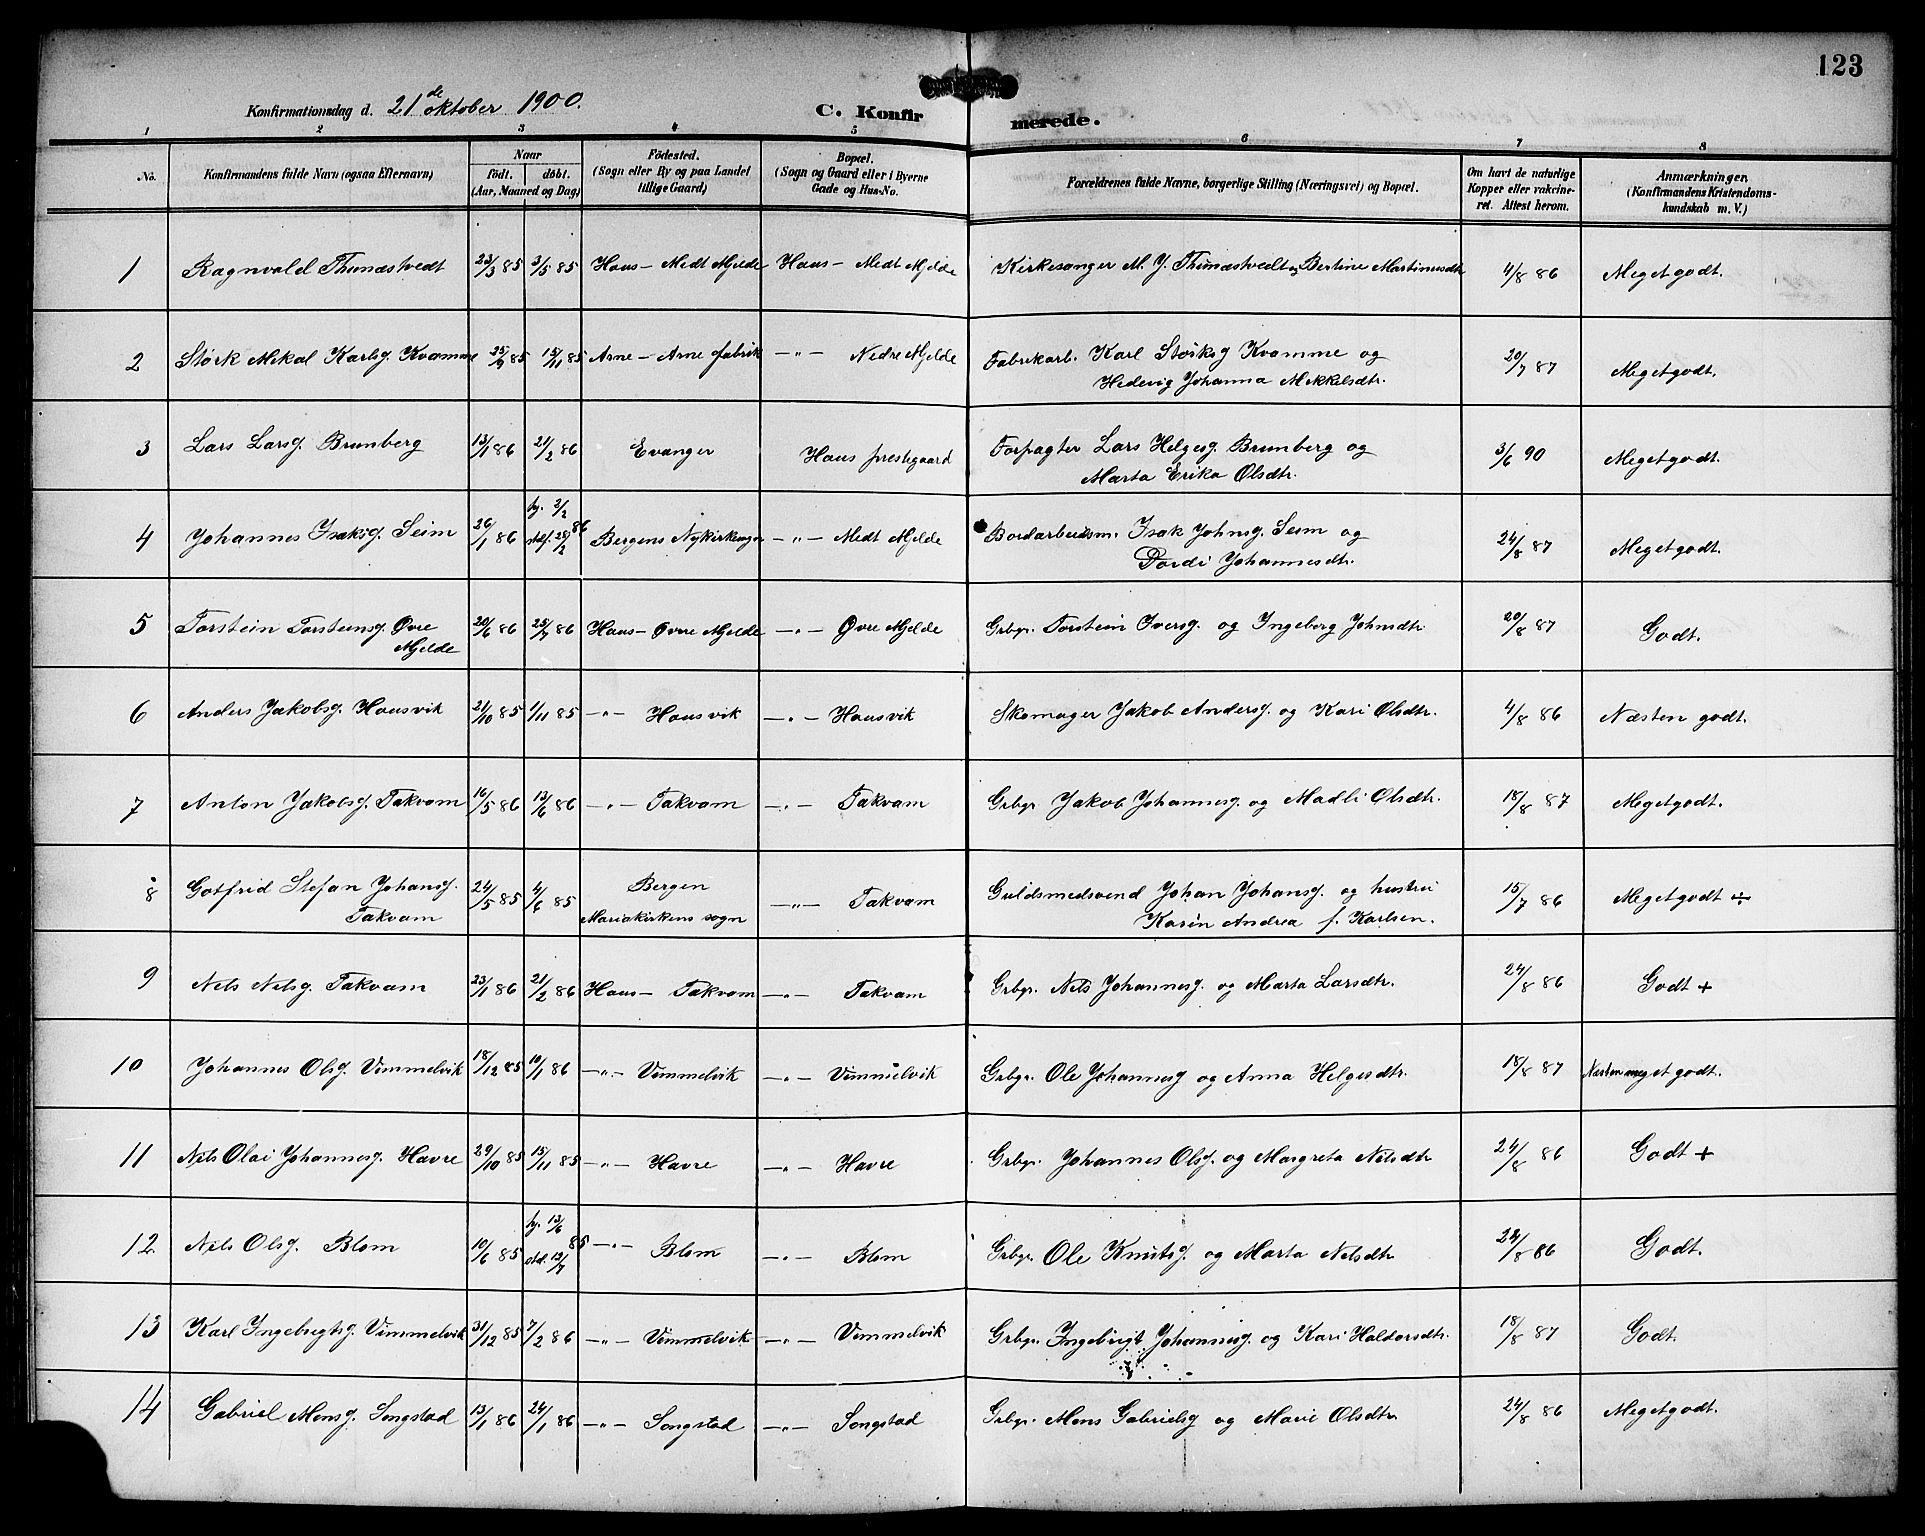 123
Konfirmationsdag d. 21de oktober 1900.
C. Konfirmerede.
1 2 3 4 5 6 7 8
No. Konfirmandens fulde Navn (ogsaa Efternavn) Naar födt. döbt. (Aar, Maaned og Dag) Födested. (Sogn eller By og paa Landet tillige Gaard) Bopæl. (Sogn og Gaard eller i Byerne Gade og Hus-No. Forældrenes fulde Navne, borgerlige Stilling (Næringsvei) og Bopæl. Om havt de naturlige Kopper eller vakcineret. Attest herom. Anmærkninger. (Konfirmandens Kristendomskundskab m. V.)
1 Ragnvald Thunæstvedt 23/3 85 3/5 85 Haus – Medt Mjelde Haus – Medt Mjelde Kirkesanger M. J. Thunæstvedt og Bertine Martinusdtr 4/8 86 Megetgodt.
2 Størk Mikal Karlsg. Kvamme 25/9 85 15/11 85 Arne – Arne fabrik –"– Nedre Mjelde Fabrikarb. Karl Størksg Kvamme og
Hedevig Johanna Mikkelsdtr. 20/7 87 Megetgodt.
3 Lars Larsg. Brunberg 13/1 86 21/2 86 Evanger Haus prestegaard Forpagter Lars Helgesg. Brunberg og
Marta Erika Olsdtr. 3/6 90 Megetgodt.
4 Johannes Isaksg. Seim 26/1 86 hj. 2/2 86 stdf. 28/2 Bergens Nykirkesogn –"– Medt Mjelde Bordarbeidsm. Isak Johnsg. Seim og
Dordi Johannesdtr. 24/8 87 Megetgodt.
5 Torstein Torsteinsg. Øvre
Mjelde 20/6 86 25/7 86 Haus – Øvre Mjelde –"– Øvre Mjelde Grbgr. Torstein Iversg. og Ingeborg Johnsdtr 20/8 87 Godt.
6 Anders Jakobsg. Hausvik 21/10 85 1/11 85 –"– Hausvik –"– Hausvik Skomager Jakob Andersg. og Kari Olsdtr. 4/8 86 Næsten godt.
7 Anton Jakobsg. Takvam 16/5 86 13/6 86 –"– Takvam –"– Takvam Grbgr. Jakob Johannesg. og Madli Olsdtr. 18/8 87 Megetgodt.
8 Gotfrid Stefan Johansg.
Takvam 24/5 85 4/6 85 Bergen
Mariakirkens sogn –"– Takvam Guldsmedsvend Johan Johansg. og hustru
Karin Andrea f. Karlsen. 15/7 86 Megetgodt ÷
9 Nils Nilsg. Takvam 23/1 86 21/2 86 Haus – Takvam –"– Takvam Grbgr. Nils Johannesg. og Marta Larsdtr. 24/8 86 Godt +
10 Johannes Olsg. Vimmelvik 18/12 85 10/1 86 –"– Vimmelvik –"– Vimmelvik Grbgr. Ole Johannesg og Anna Helgesdtr. 18/8 87 Næsten megetgodt.
11 Nils Olai Johannesg. Havre 29/10 85 15/11 85 –"– Havre –"– Havre Grbgr. Johannes Olsg. og Margreta Nilsdtr 24/8 86 Godt +
12 Nils Olsg. Blom 10/6 85 hj. 13/6 85 std. 12/7 –"– Blom –"– Blom Grbgr. Ole Knutsg. og Marta Nilsdtr 24/8 86 Godt.
13 Karl Ingebrigtsg. Vimmelvik 31/12 85 7/2 86 –"– Vimmelvik –"– Vimmelvik Grbgr. Ingebrigt Johannesg. og Kari Haldorsdtr. 18/8 87 Godt.
14 Gabriel Monsg. Songstad 13/1 86 24/1 86 –"– Songstad –"– Songstad Grbgr. Mons Gabrielsg og Marie Olsdtr. 24/8 86 Megetgodt.